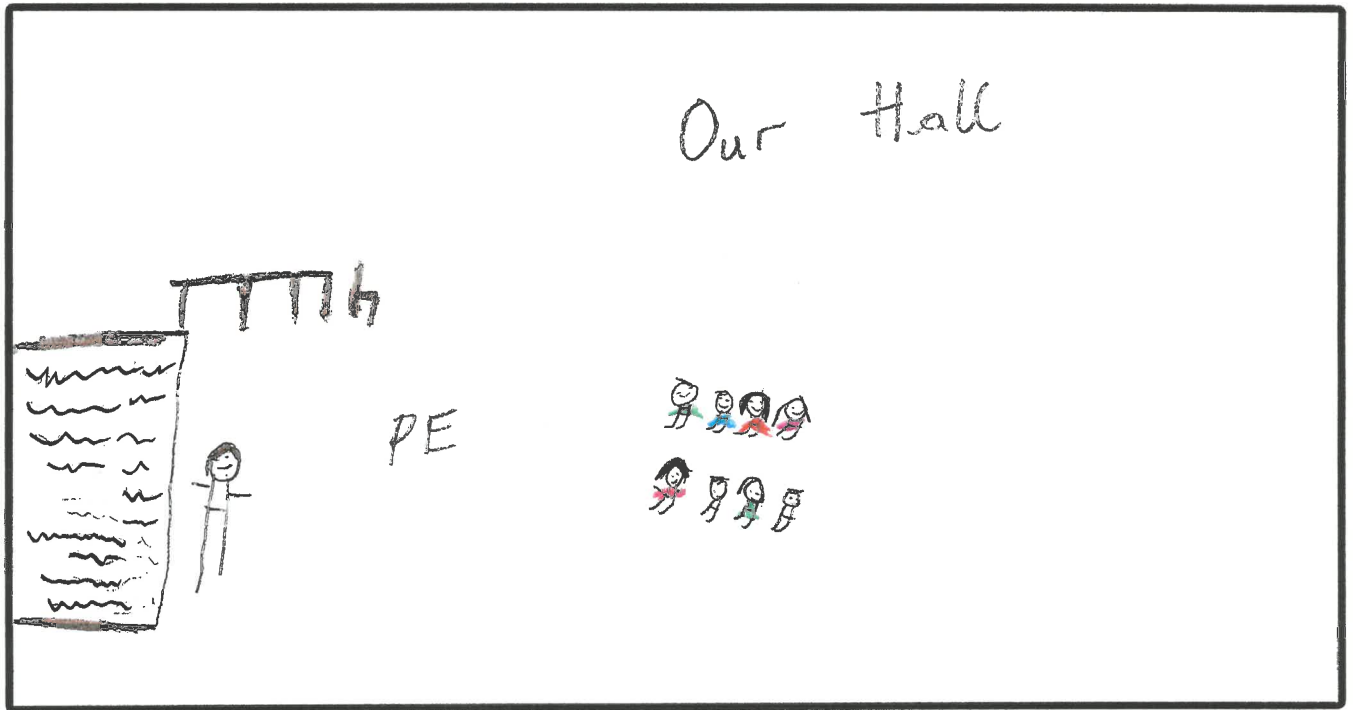 Our Hall
PE